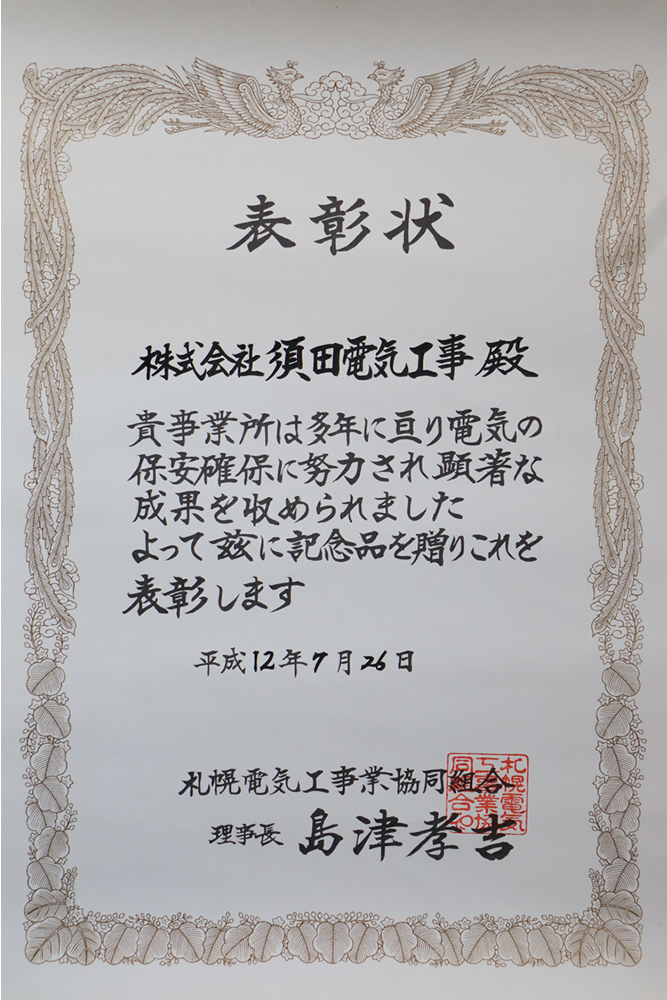 表彰状
株式会社 須田電気工事 殿
貴事業所は多年に亘り電気の
保安確保に努力され顕著な
成果を収められました
よって玆に記念品を贈りこれを
表彰します
平成12年7月26日
札幌電気工事業協同組合
理事長 島津孝吉